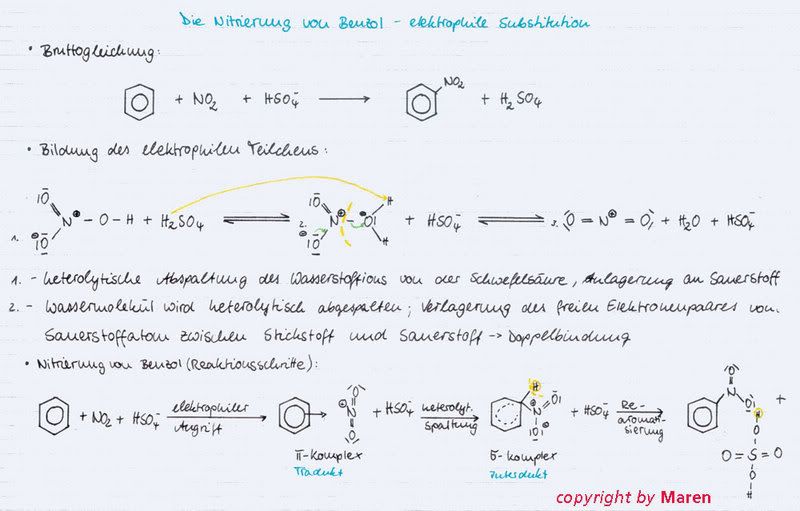 Die Nitrierung von Benzol – elektrophile Substitution
• Bruttogleichung:
+ NO₂ + HSO₄⁻ → NO₂ + H₂SO₄
• Bildung des elektrophilen Teilchens:
1. |O N⊕ – O – H + H₂SO₄ ⇌ 2. |O N⊕ O| H H + HSO₄⁻ ⇌ 3. O = N⊕ = O + H₂O + HSO₄⁻
⊖ |O ⊖ |O
1. – heterolytische Abspaltung des Wasserstoffions von der Schwefelsäure, Anlagerung an Sauerstoff
2. – Wassermolekül wird heterolytisch abgespalten; Verlagerung des freien Elektronenpaares vom
Sauerstoffatom zwischen Stickstoff und Sauerstoff → Doppelbindung
• Nitrierung von Benzol (Reaktionsschritte):
+ NO₂ + HSO₄⁻ elektrophiler Angriff → O N⊕ O + HSO₄⁻ heterolyt. Spaltung → H N⊕ O| |O|⊖ + HSO₄⁻ Re-aromati-sierung → O N O| H +
O
O = S = O
O
H
π-Komplex
σ-Komplex
copyright by Maren